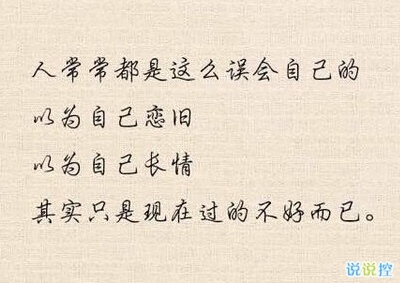 人常常都是这么误会自己的
以为自己恋旧
以为自己长情
其实只是现在过的不好而已。
说说控